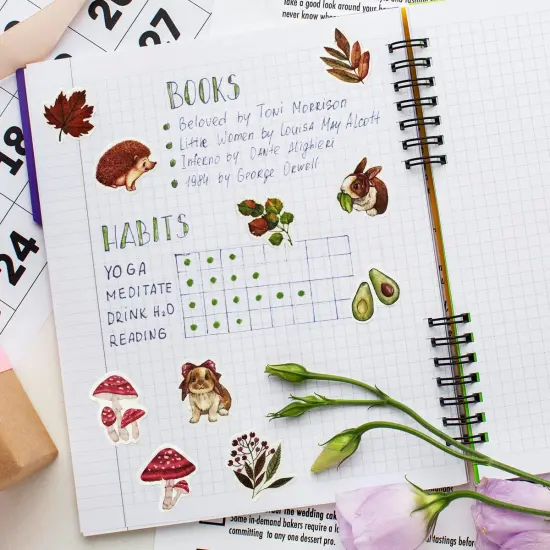 Take a good look around your
never know when
27
18
24
BOOKS
Beloved by Toni Morrison
Little Women by Louisa May Alcott
Inferno by Dante Alighieri
1984 by George Orwell
HABITS
YOGA
MEDITATE
DRINK H₂O
READING
the wedding cak
Some in-demand bakers require a
committing to any one dessert pro
tastings before